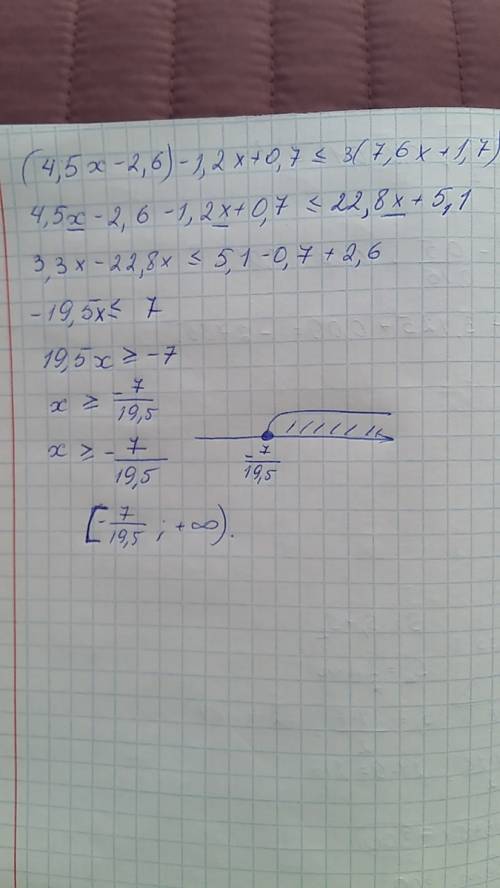 (4,5x-2,6)-1,2x+0,7≤3(7,6x+1,7)
4,5x-2,6-1,2x+0,7≤22,8x+5,1
3,3x-22,8x≤5,1-0,7+2,6
-19,5x≤7
19,5x≥-7
x≥-7/19,5
x≥-7/19,5
-7/19,5
[-7/19,5;+∞).